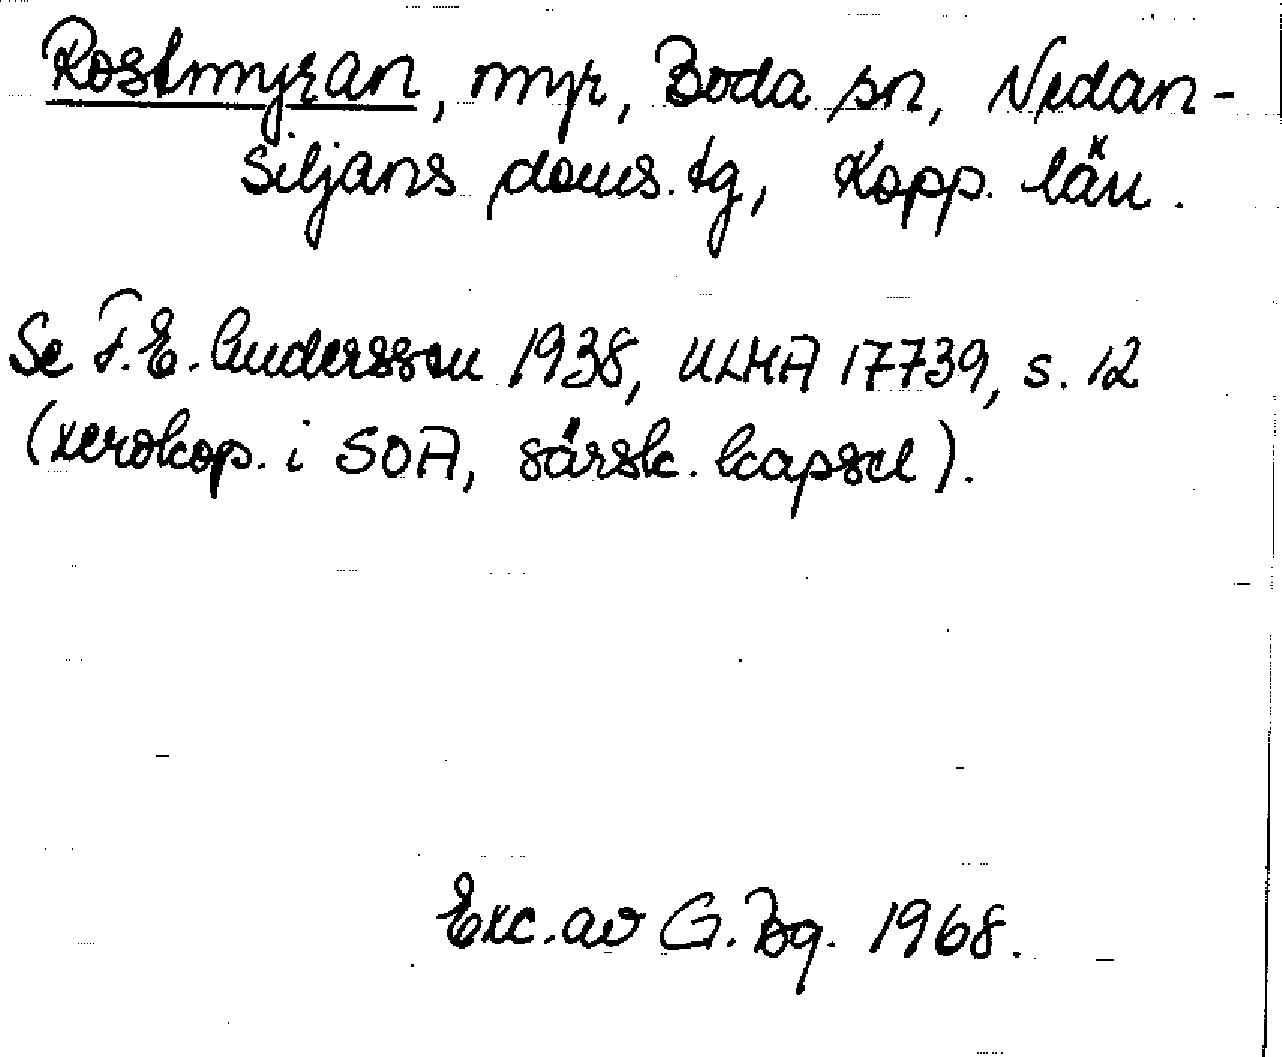 Rostmyran, myr, Boda sn, Nedan-
Siljans doms.tg, Kopp. län.
Se F.E. Andersson 1938, ULMA 17739, s. 12
(xerokop. i SOA, särsk. kapsel).
Exc. av G. Bg. 1968.